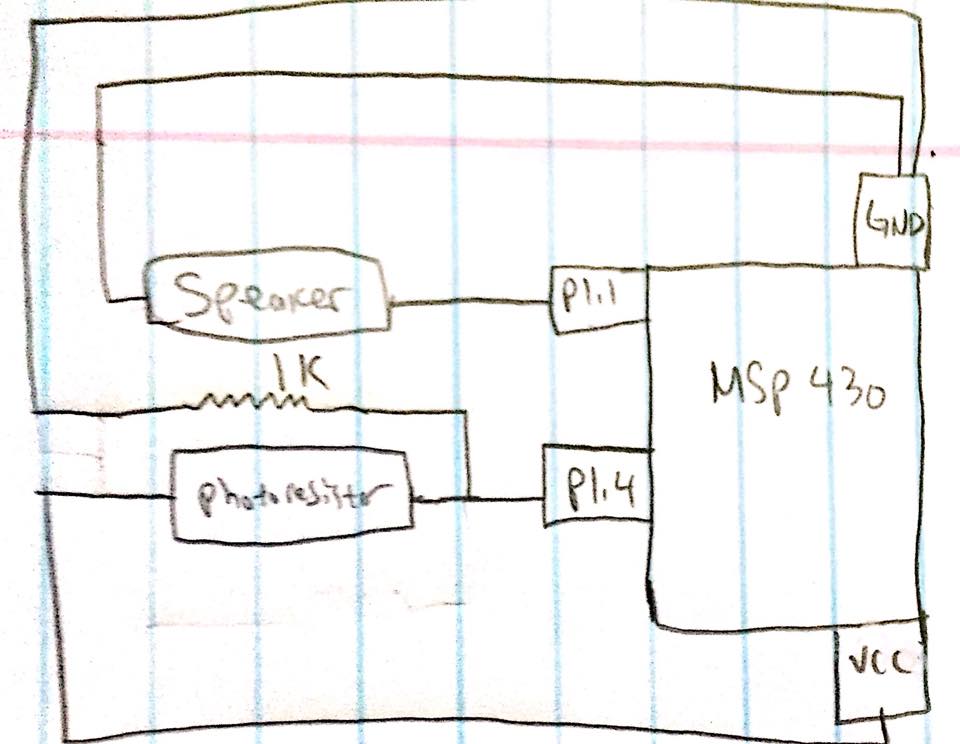 GND
Speaker
P1.1
1K
MSP 430
photoresistor
P1.4
VCC